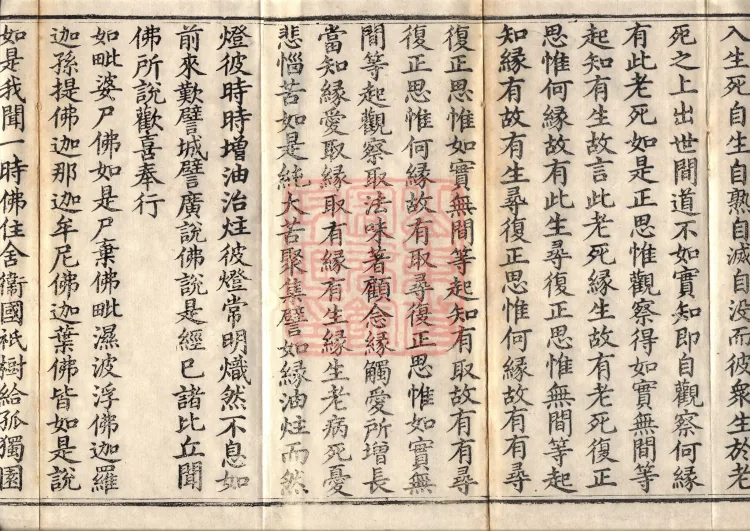 入生死自生自熟自滅自没而彼衆生於老
死之上出世間道不如實知即自觀察何緣
有此老死如是正思惟觀察得如實無間等
起知有生故言此老死緣生故有老死復正
思惟何緣故有此生尋復正思惟無間等起
知緣有故有生尋復正思惟何緣故有有尋
復正思惟如實無間等起知有取故有有尋
復正思惟何緣故有取尋復正思惟如實無
間等起觀察取法味著顧念緣觸愛所增長
當知緣愛取緣取有緣有生緣生老病死憂
悲惱苦如是純大苦聚集譬如緣油炷而然
燈彼時時增油治炷彼燈常明熾然不息如
前來歎譬城譬廣說佛說是經已諸比丘聞
佛所說歡喜奉行
如毗婆尸佛如是尸棄佛毗濕波浮佛迦羅
迦孫提佛迦那迦牟尼佛迦葉佛皆如是說
如是我聞一時佛住舍衞國祇樹給孤獨園